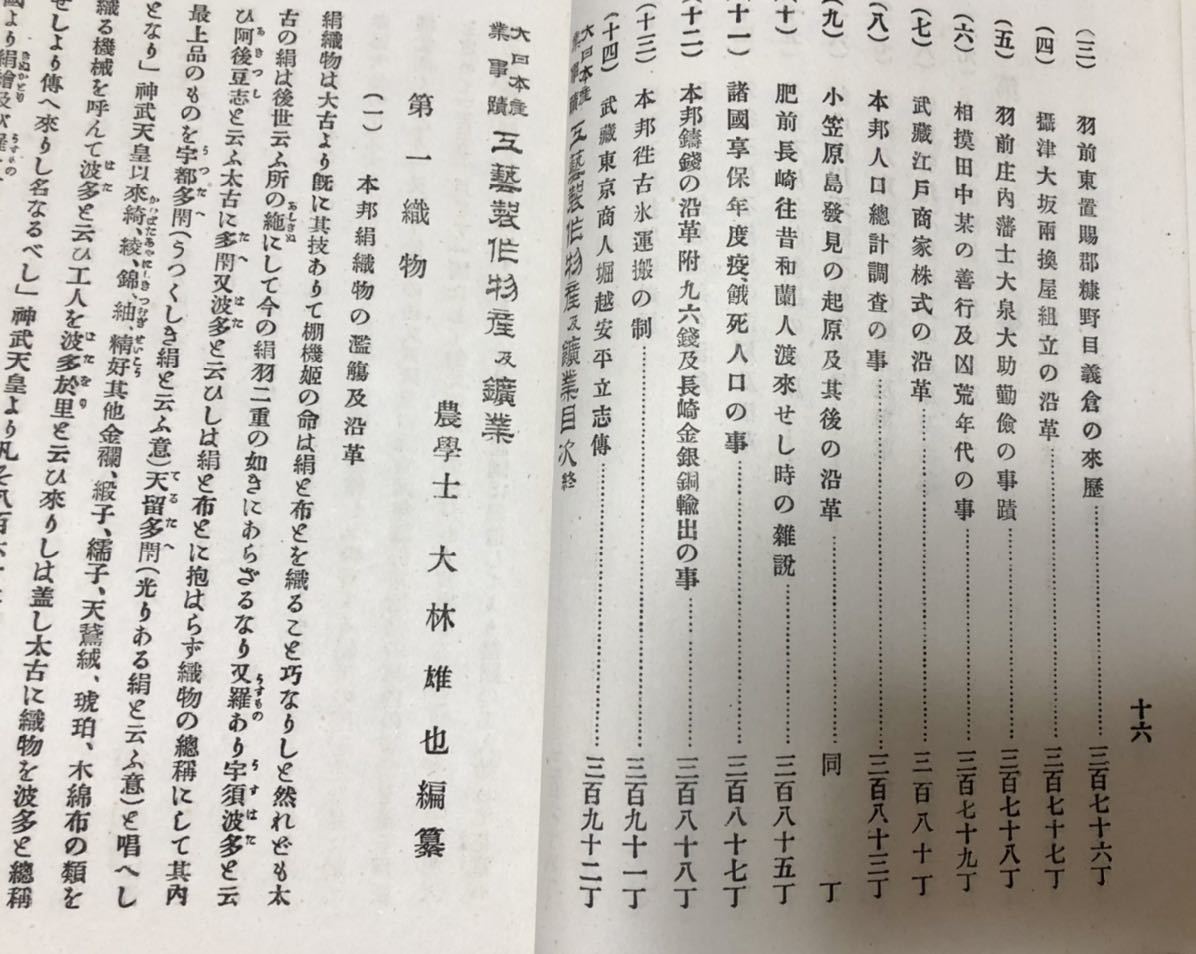 十六
(三) 羽前東置賜郡糠野目義倉の來歷……三百七十六丁
(四) 攝津大坂兩換屋組立の沿革……三百七十七丁
(五) 羽前庄內藩士大泉大助勤儉の事蹟……三百七十八丁
(六) 相摸田中某の善行及凶荒年代の事……三百七十九丁
(七) 武藏江戶商家株式の沿革……三百八十丁
(八) 本邦人口總計調査の事……三百八十三丁
(九) 小笠原島發見の起原及其後の沿革……同丁
十) 肥前長崎往昔和蘭人渡來せし時の雜說……三百八十五丁
十一) 諸國享保年度疫、餓死人口の事……三百八十七丁
十二) 本邦鑄錢の沿革附九六錢及長崎金銀銅輸出の事……三百八十八丁
(十三) 本邦徃古氷運搬の制……三百九十一丁
(十四) 武藏東京商人堀越安平立志傳……三百九十二丁
大日本產業事蹟 工藝製作物產及鑛業目次終
大日本產業事蹟 工藝製作物產及鑛業
農學士 大林雄也編纂
第一 織物
(一) 本邦絹織物の濫觴及沿革
絹織物は大古より旣に其技ありて棚機姬の命は絹と布とを織ること巧なりしと然れども太
古の絹は後世云ふ所の絁にして今の絹羽二重の如きにあらざるなり又羅あり宇須波多と云
ひ阿後豆志と云ふ太古に多閇又波多と云ひしは絹と布とに抱はらず織物の總稱にして其內
最上品のものを宇都多閇(うつくしき絹と云ふ意)天留多閇(光りある絹と云ふ意)と唱へし
となり」神武天皇以來綺、綾、錦、紬、精好其他金襴、緞子、繻子、天鵞絨、琥珀、木綿布の類を
織る機械を呼んて波多と云ひ工人を波多於里と云ひ來りしは蓋し太古に織物を波多と總稱
せしより傳へ來りし名なるべし」神武天皇より凡そ八百六十
國より絹繪及